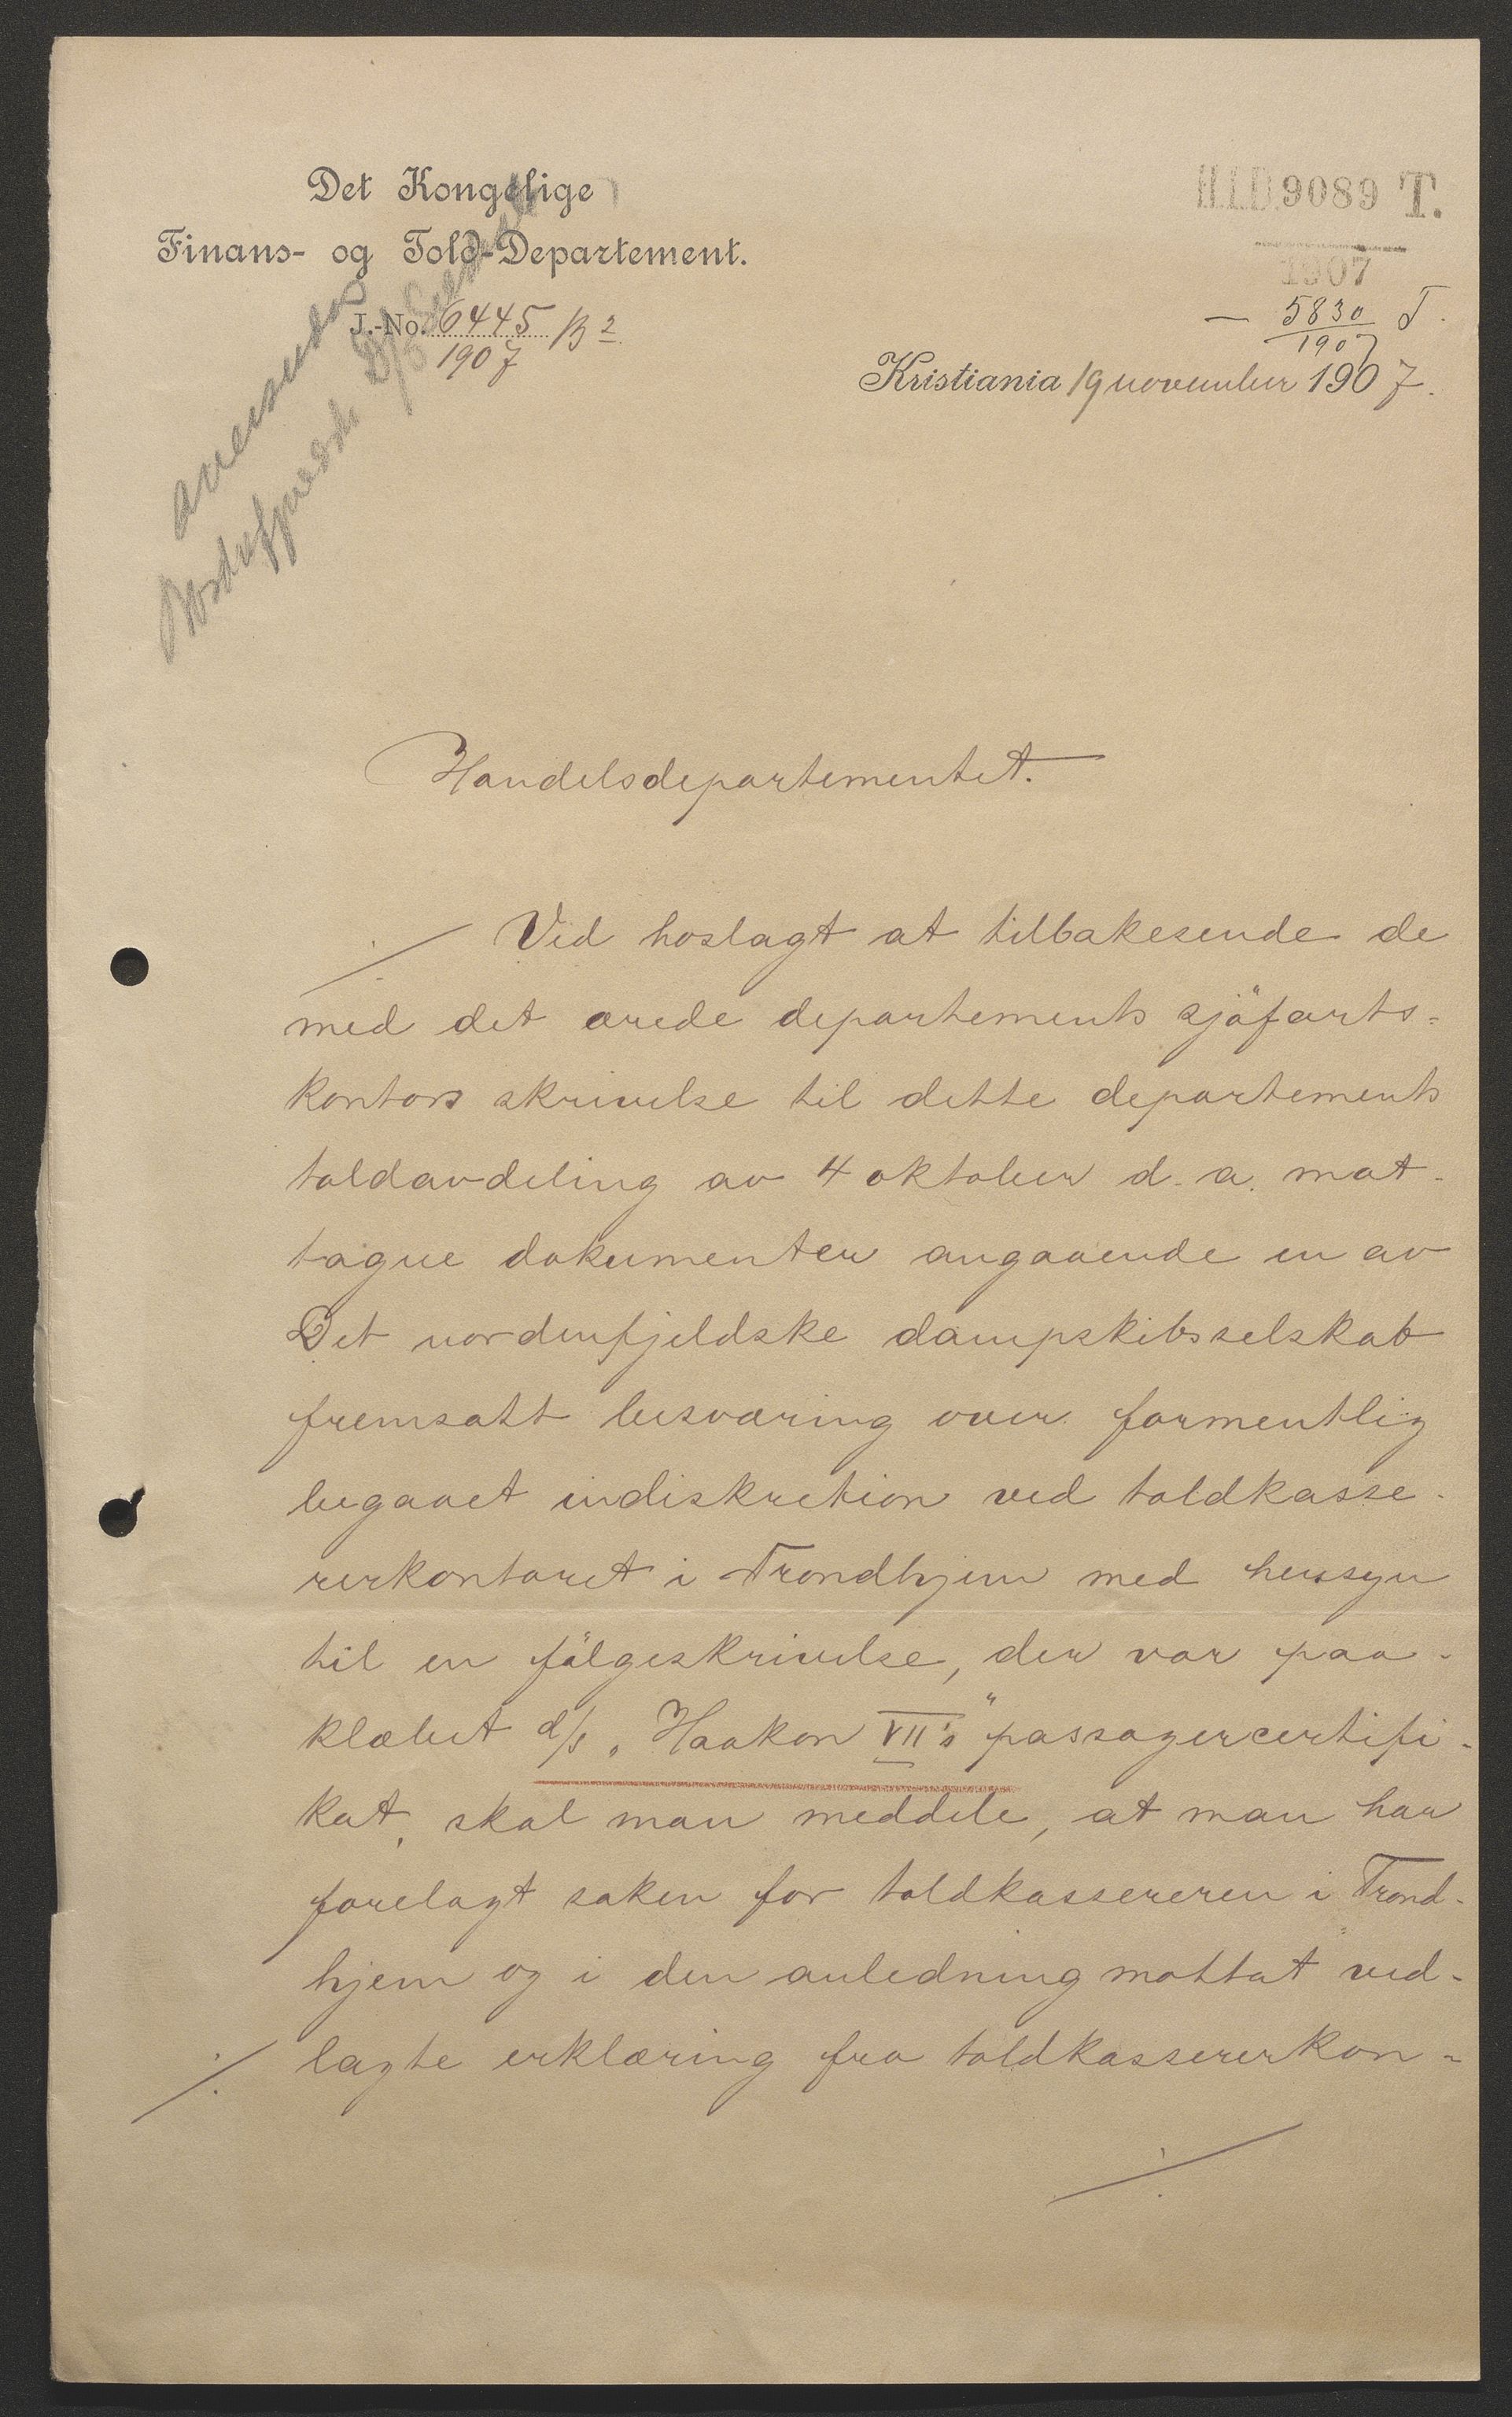 Det Kongelige
Finans- og Told-Departement.
J.-No. 6445 B2
1907
H.I.D. 9089 T.
1907
– 5830 T.
1907
Kristiania 19 november 1907.
Handelsdepartementet.
./. Ved hoslagt at tilbakesende de
med det ærede departements sjöfarts-
kontors skrivelse til dette departements
toldavdeling av 4 oktober d. a. mot-
tagne dokumenter angaaende en av
Det nordenfjeldske dampskibsselskab
fremsatt besværing over formentlig
begaaet indiskretion ved toldkasse-
rerkontoret i Trondhjem med hensyn
til en fölgeskrivelse, der var paa-
klæbet d/s „Haakon VII's" passagercertifi-
kat, skal man meddele, at man har
forelagt saken for toldkassereren i Trond-
hjem og i den anledning mottat ved-
./. lagte erklæring fra toldkassererkon-
./.